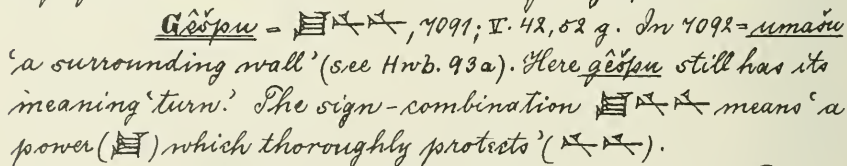 Gêšpu = 𒋗𒉽𒉽, 7091; V. 42, 52 g. In 7092 = umašu
'a surrounding wall' (see Hwb. 93a). Here gêšpu still has its
meaning 'turn.' The sign-combination 𒋗𒉽𒉽 means 'a
power (𒋗) which thoroughly protects' (𒉽𒉽).